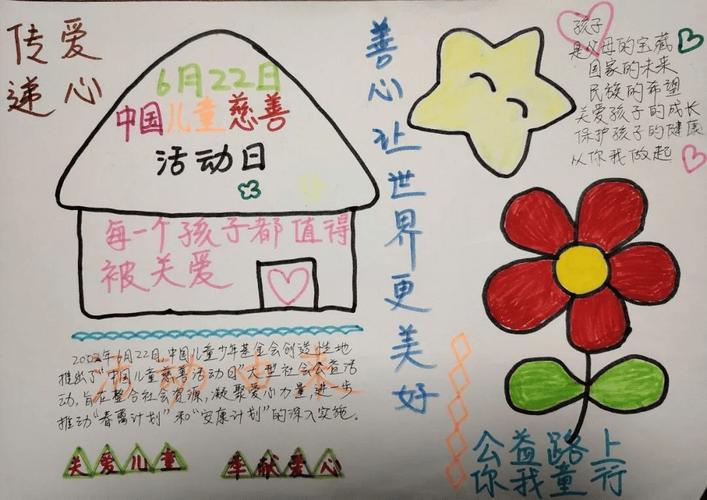 传爱
递心
6月22日
中国儿童慈善
活动日
每一个孩子都值得
被关爱
善心让世界更美好
孩子
是父母的宝藏
国家的未来
民族的希望
关爱孩子的成长
保护孩子的健康
从你我做起
2002年6月22日,中国儿童少年基金会创造性地
推出了"中国儿童慈善活动日"大型社会公益活
动,旨在整合社会资源,凝聚爱心力量,进一步
推动"春蕾计划"和"安康计划"的深入实施。
关爱儿童
奉献爱心
公益路上
你我童行